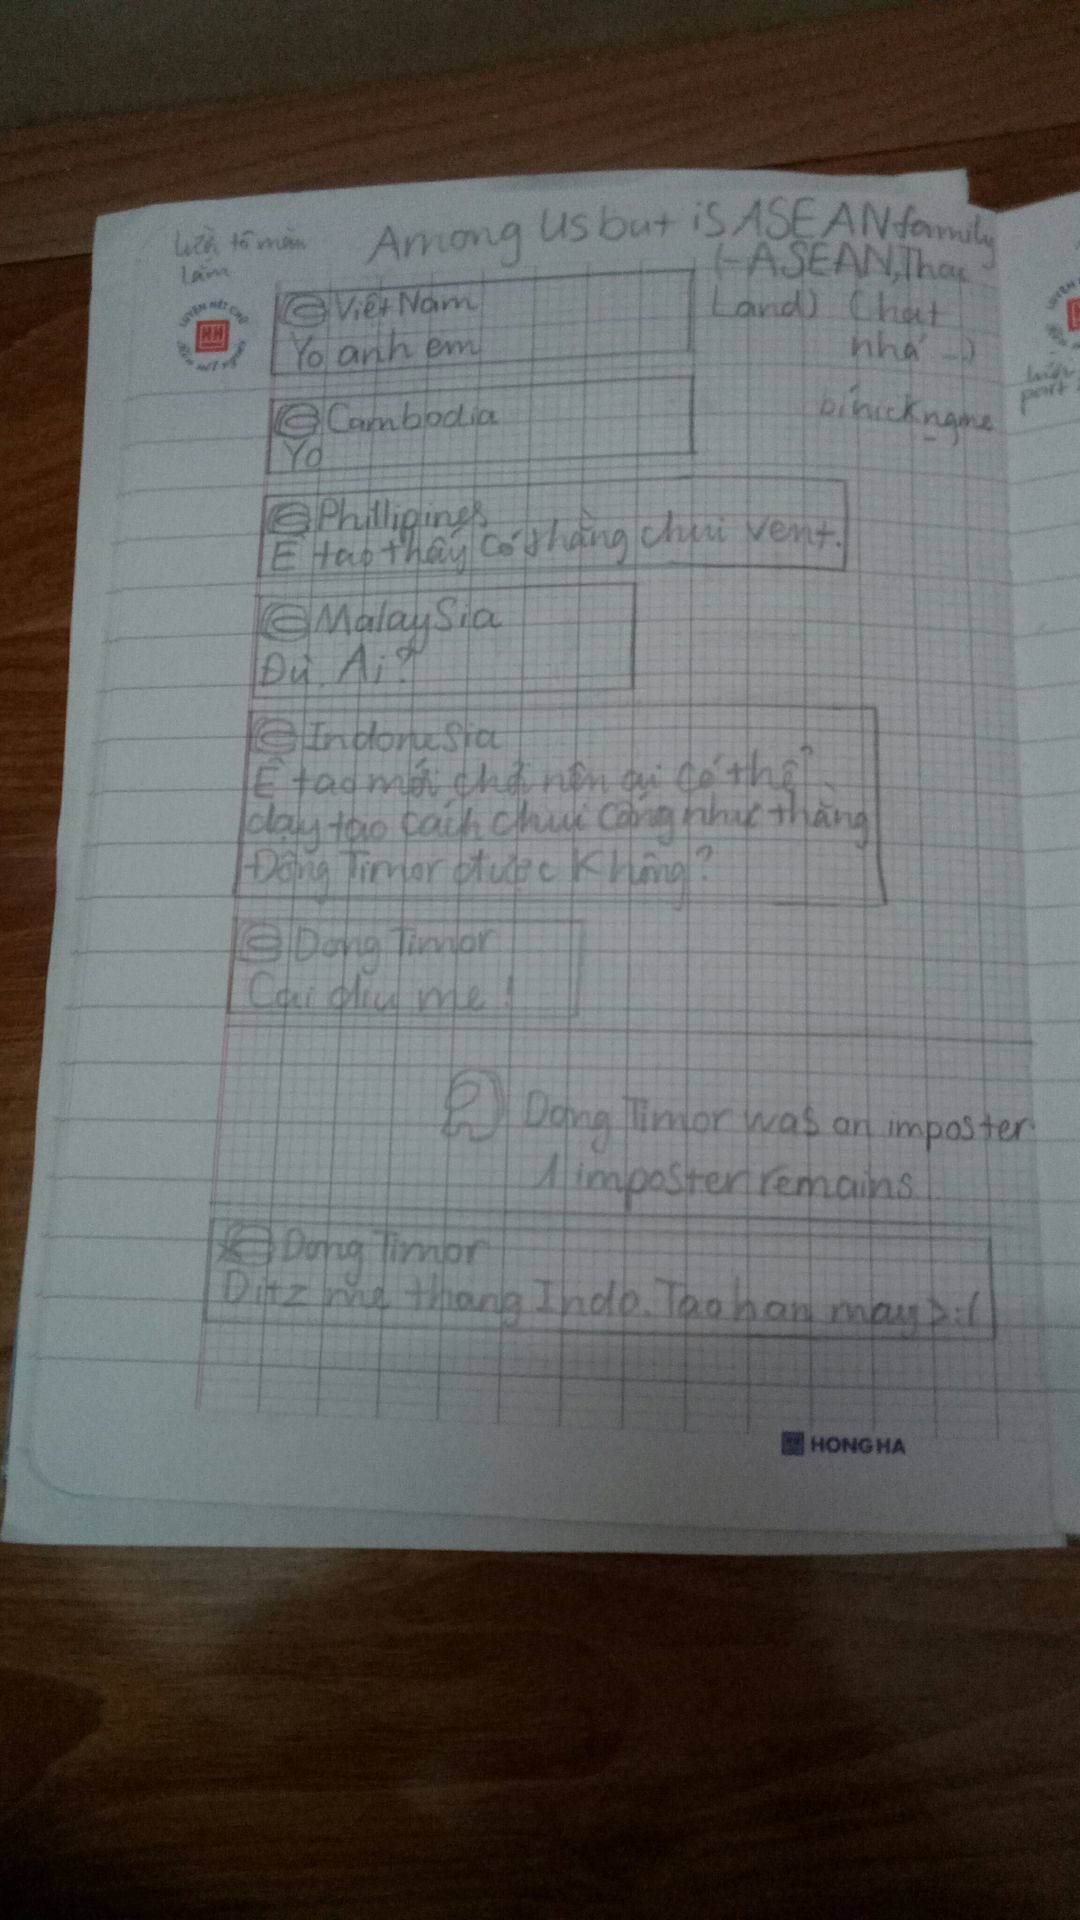 Among Us but is ASEAN family
(-ASEAN, Thai
Land) (hat
nhá -)
bí nickname
lười tô màu
lắm
LUYỆN NÉT CHỮ
HH
Việt Nam
Yo anh em
Cambodia
Yo
Phillipines
Ê tao thấy có thằng chui vent.
MalaySia
Đù. Ai?
IndoneSia
Ê tao mới chơi nên ai có thể
dạy tao cách chui cống như thằng
Đông Timor được Không?
Dong Timor
Cai diu me!
Dong Timor was an imposter
1 imposter remains
Dong Timor
Ditz me thang Indo. Tao han may >:(
HONG HA